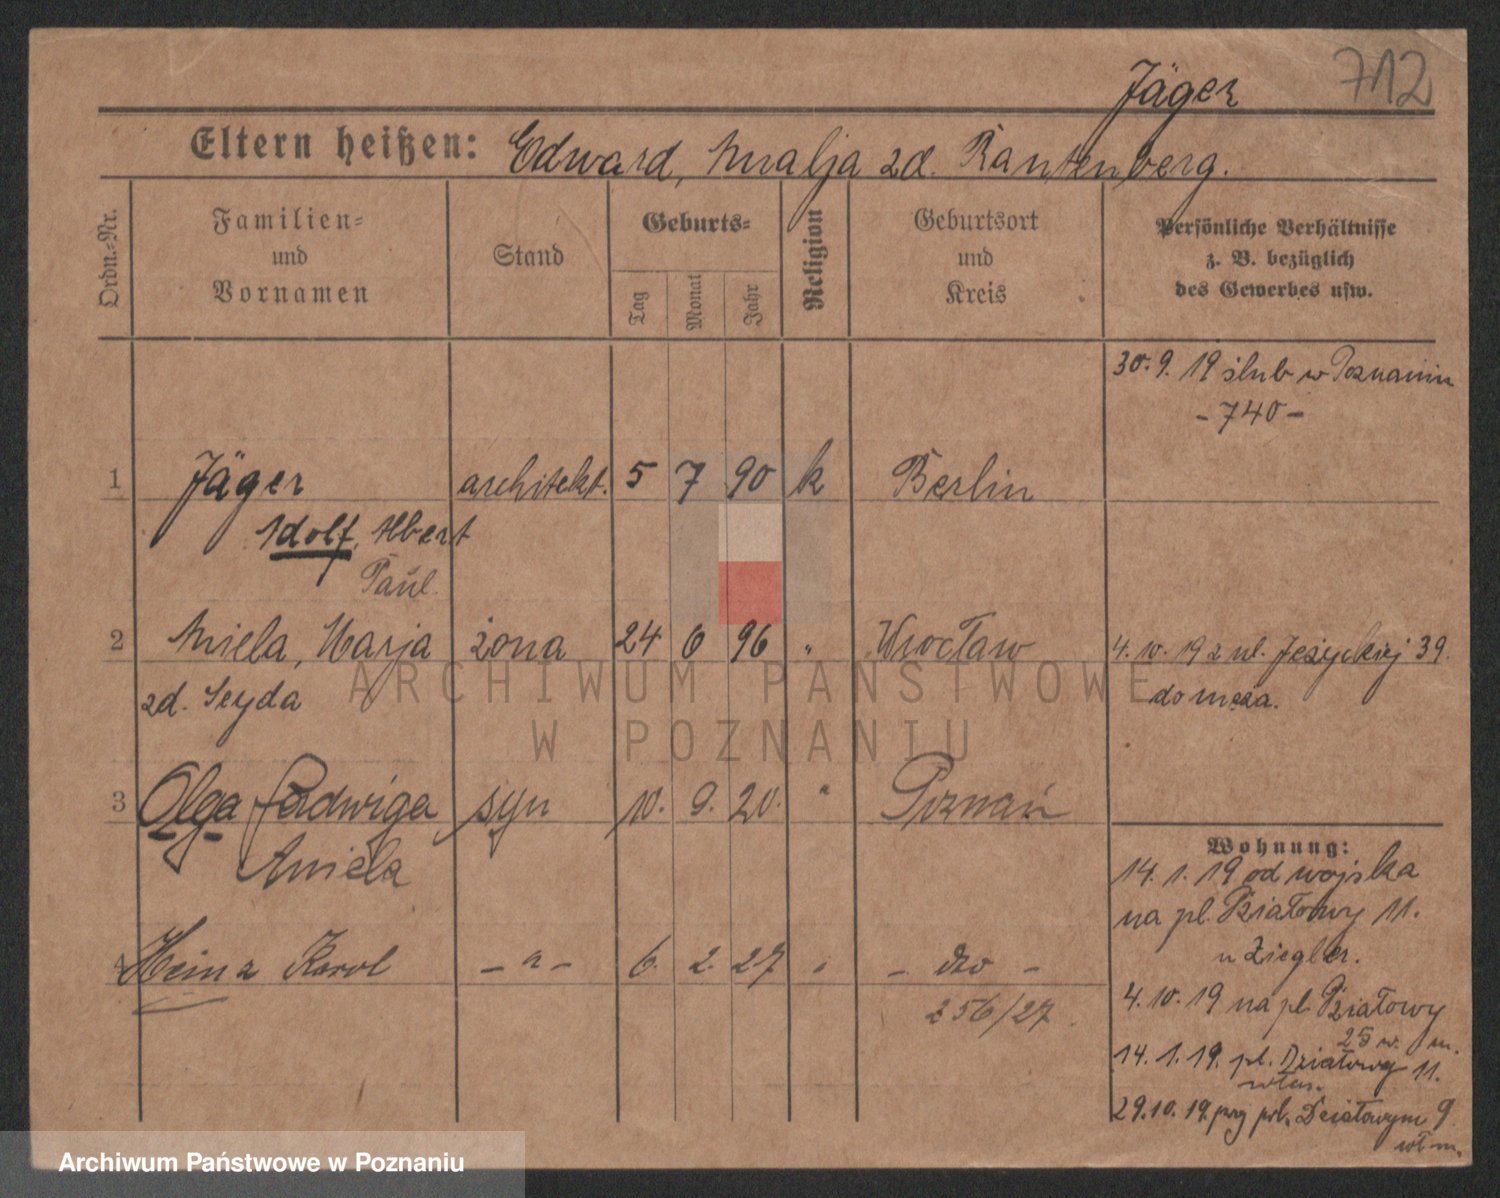 712
Jäger
Eltern heißen: Edward, Amalja zd. Rautenberg.
Ordn.-Nr.
Familien-
und
Vornamen
Stand
Geburts-
Tag
Monat
Jahr
Religion
Geburtsort
und
Kreis
Persönliche Verhältnisse
z. B. bezüglich
des Gewerbes usw.
30. 9. 19 ślub w Poznaniu
- 740 -
1 Jäger architekt. 5 7 90 k Berlin
Adolf, Albert
Paul
2 Aniela, Marja żona 24 6 96 " Wrocław
zd. Seyda
4. 10. 19 z ul. Jeżyckiej 39.
do męża.
ARCHIWUM PAŃSTWOWE
W POZNANIU
3 Olga Jadwiga syn 10. 9. 20. " Poznań
Aniela
4 Heinz Karol - " - 6. 2. 27 " - dto -
256/27
Wohnung:
14. 1. 19 od wojska
na pl. Działowy 11.
u Ziegler.
4. 10. 19 na pl. Działowy
14. 1. 19. pl. Działowy 11.
29. 10. 19. przy pl. Działowym 9
Archiwum Państwowe w Poznaniu